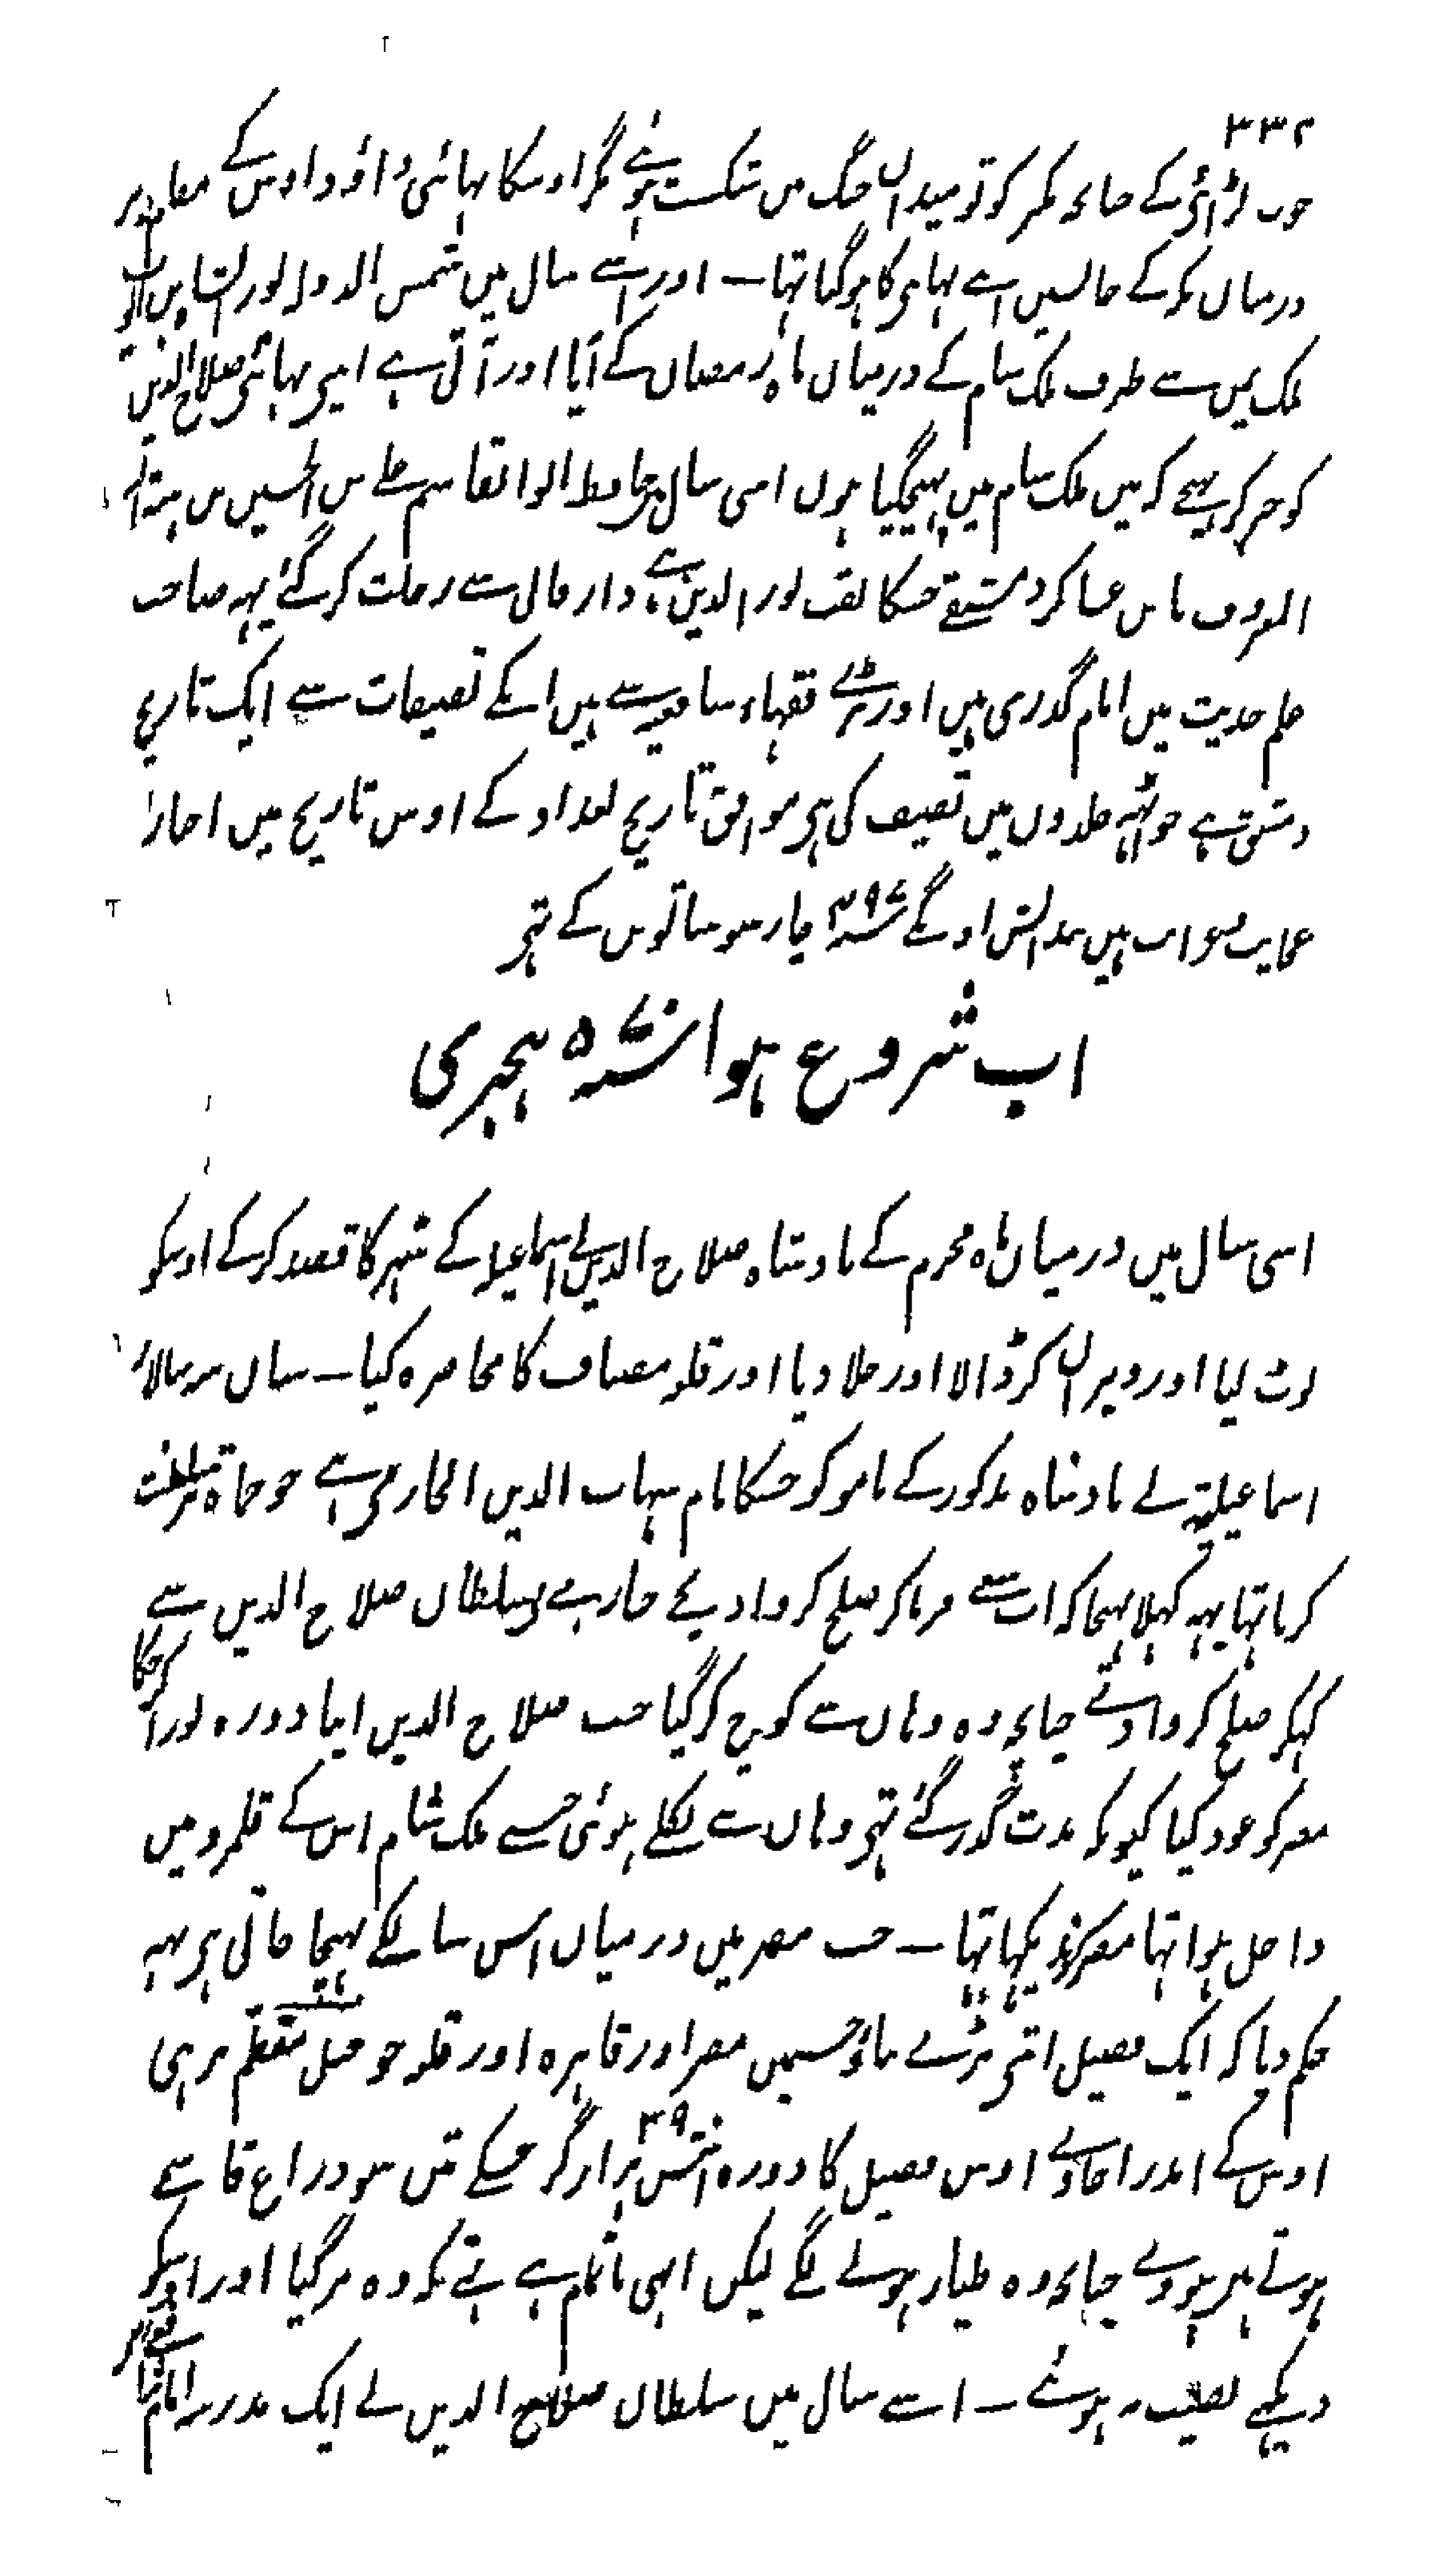 ۳۳۲
خوب لڑائی کے چنانچہ مکہر کو تو میدان جنگ میں شکست ہوئے مگر اوسکا بہائی داؤد اوس کے
درمیان مکہ کے جانشین اپنے بہائی کا ہو گیا تہا — اور اسی سال میں شمس الدولہ توران شاہ بن ایوب
ملک یمن سے طرف ملک شام کے درمیان ماہ رمضان کے آیا اور آتی ہے اپنی بہائی صلاح الدین
کو خبر کر بہیجی کہ میں ملک شام میں پہنچ گیا ہوں اسی سال میں حافظ ابوالقاسم علی بن الحسین بن ہبۃ اللہ
المعروف بابن عساکر دمشقی جسکا لقب نور الدین ہے دار فانی سے رحلت کر گئے یہہ صاحب
علم حدیث میں امام گذری ہیں اور بڑے فقہاء شافعیہ سے ہیں انکے تصنیفات سے ایک تاریخ
دمشق ہے جو جلدوں میں تصنیف کی ہی موافق تاریخ بغداد کے اوس تاریخ میں اخبار
عجایب و غرایب ہیں پیدائش اونکے چار سو ننانویں کے تہی
اب شروع ہوا ہجری
اسی سال میں درمیان ماہ محرم کے بادشاہ صلاح الدین نے اسماعیلیہ کے شہر کا قصد کر کے اوسکو
لوٹ لیا اور ویران کر ڈالا اور جلا دیا اور قلعہ مصیاف کا محاصرہ کیا —
اسماعیلیہ نے بادشاہ مذکور کے مامو کو جسکا نام شہاب الدین الحارمی ہے جو حماۃ
کرتا تہا یہہ کہلا بہیجا کہ آپ سعی فرما کر صلح کروا دیجے چنانچہ سلطان صلاح الدین سے
کہکر صلح کروا دئے چنانچہ وہ وہاں سے کوچ کر گیا جب صلاح الدین اپنا دورہ پورا کر چکا
مصر کو عود کیا کیونکہ مدت گذر گئے تہی وہاں سے نکلے ہوئی جب سے ملک شام اس کے قلمرو میں
داخل ہوا تہا مصر کو نہ دیکہا تہا — جب مصر میں درمیان اس سال کے پہنچا
حکم دیا کہ ایک فصیل اتنی بڑے بناؤ جسمیں مصر اور قاہرہ اور قلعہ جو جبل مقطم پر ہی
اوس کے اندر آجاوے اوس فصیل کا دورہ انتیس ہزار گز جسکے تین سو ذراع
ہوتے ہیں ہووے چنانچہ وہ طیار ہونے لگے لیکن ابہی ناتمام ہے تہے کہ وہ مر گیا اور اوسکو
دیکہنے نصیب نہ ہوئے — اسے سال میں سلطان صلاح الدین نے ایک مدرسہ امام